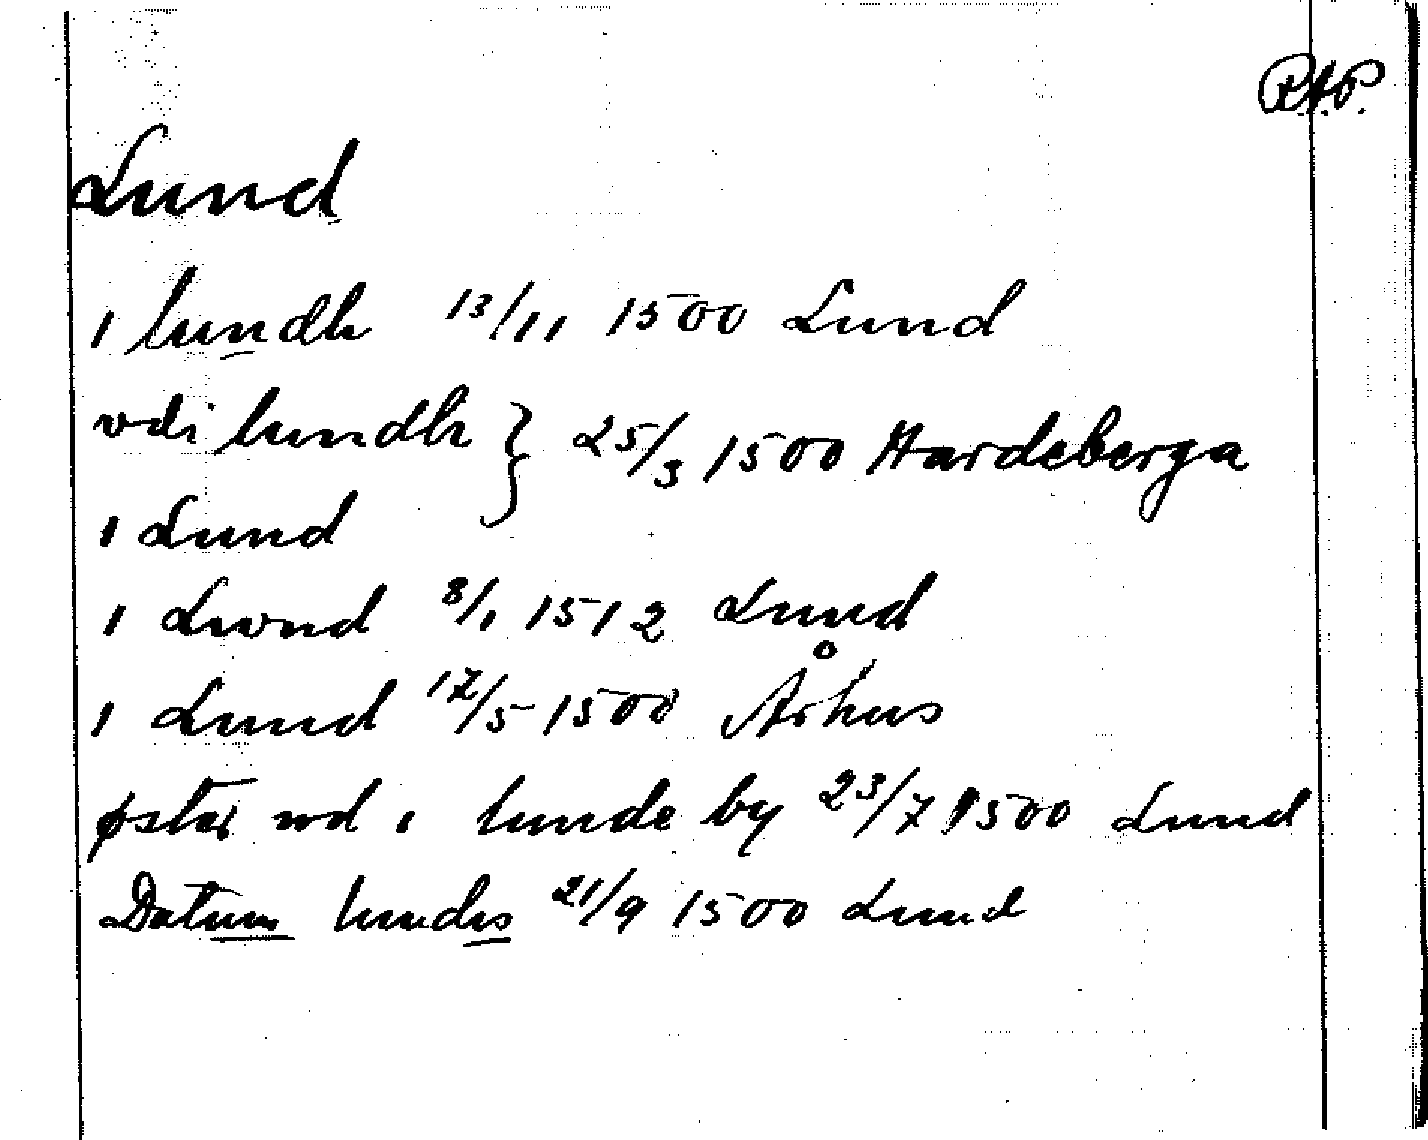 R.A.P.
Lund
i lundh 13/11 1500 Lund
vdi lundh } 25/3 1500 Hardeberga
i Lund
i Lwnd 8/1 1512 Lund
i Lund 12/5 1500 Århus
øster wd i lunde by 23/7 1500 Lund
Datum lundis 21/9 1500 Lund